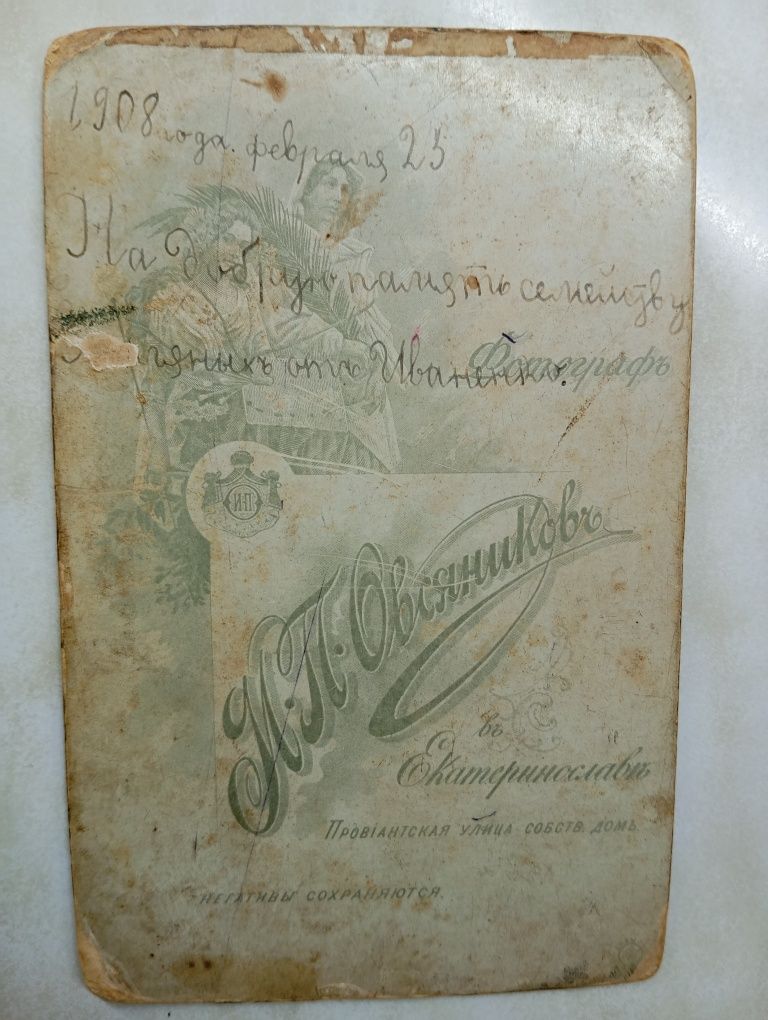 1908 года. февраля 25
На добрую память семейству
гяныхъ отъ Иваненко.
Фотографъ
И.П
М.П.Овсяниковъ
въ
Екатеринославѣ
Провіантская улица собств. домъ.
Негативы сохраняются.